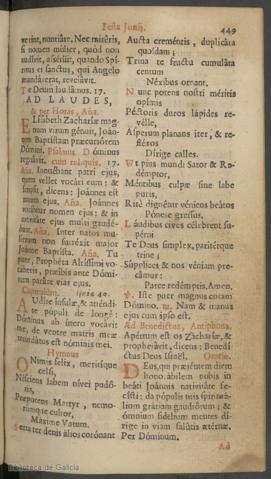 Festa Junij.
449
venint, nuntiare. Nec mirêris,
si novum múlier, quòd non
audîsti, asserîtur, quando Spí-
ritus es sanctus, qui Angelo
mandáverat, revelávit.
Te Deum laudámus. 17.
AD LAUDES,
& per Horas, Aña.
Elísabeth Zachariæ mag-
num virum génuit, Joán-
nem Baptístam præcursórem
Dómini. Psalmus. Dóminus
regnávit. cum reliquis. 17.
Aña. Innuébant patri ejus,
quem vellet vocári eum: &
scripsit, dicens: Joánnes est
nomen ejus. Aña. Joánnes
vocábitur nomen ejus: & in
nativitáte ejus multi gaudé-
bunt. Aña. Inter natos mu-
lierum non surréxit major
Joánne Baptísta. Aña. Tu
puer, Prophéta Altíssimi vo-
cáberis, præíbis ante Dómi-
num paráre vias ejus.
Capitulum. Isaiæ 49.
Audíte ínsulæ, & atténdi-
te pópuli de longè:
Dóminus ab útero vocávit
me, de ventre matris meæ
recordátus est nóminis mei.
Hymnus
O Nimis felix, meritíque
celsi,
Nésciens labem nívei pudó-
ris,
Præpotens Martyr, nemo-
rúmque cultor,
Máxime Vatum.
Serta ter denis álios corónant
Aucta creméntis, duplicáta
quosdam;
Trina te fructu cumuláta
centum
Néxibus ornant.
Nunc potens nostri méritis
opímis
Péctoris duros lápides re-
vélle,
Asperum planans iter, & re-
fléxos
Dírige calles.
Ut pius mundi Sator & Re-
démptor,
Méntibus culpæ sine labe
puris,
Ritè dignétur véniens beátos
Pónere gressus.
Láudibus cives célebrent su-
pérni
Te Deus simplex, paritérque
trine;
Súpplices & nos véniam pre-
cámur:
Parce redémptis. Amen.
℣. Iste puer magnus coram
Dómino, ℟. Nam & manus
ejus cum ipso est.
Ad Benedictus, Antiphona.
Apértum est os Zachariæ, &
prophetávit, dicens: Benedí-
ctus Deus Israël. Oratio.
Deus, qui præséntem diem
honorábilem nobis in
beáti Joánnis nativitáte fe-
císti: da pópulis tuis spirituá-
lium grátiam gaudiórum; &
ómnium fidélium mentes dí-
rige in viam salútis ætérnæ.
Per Dóminum.
Ad
Biblioteca de Galicia